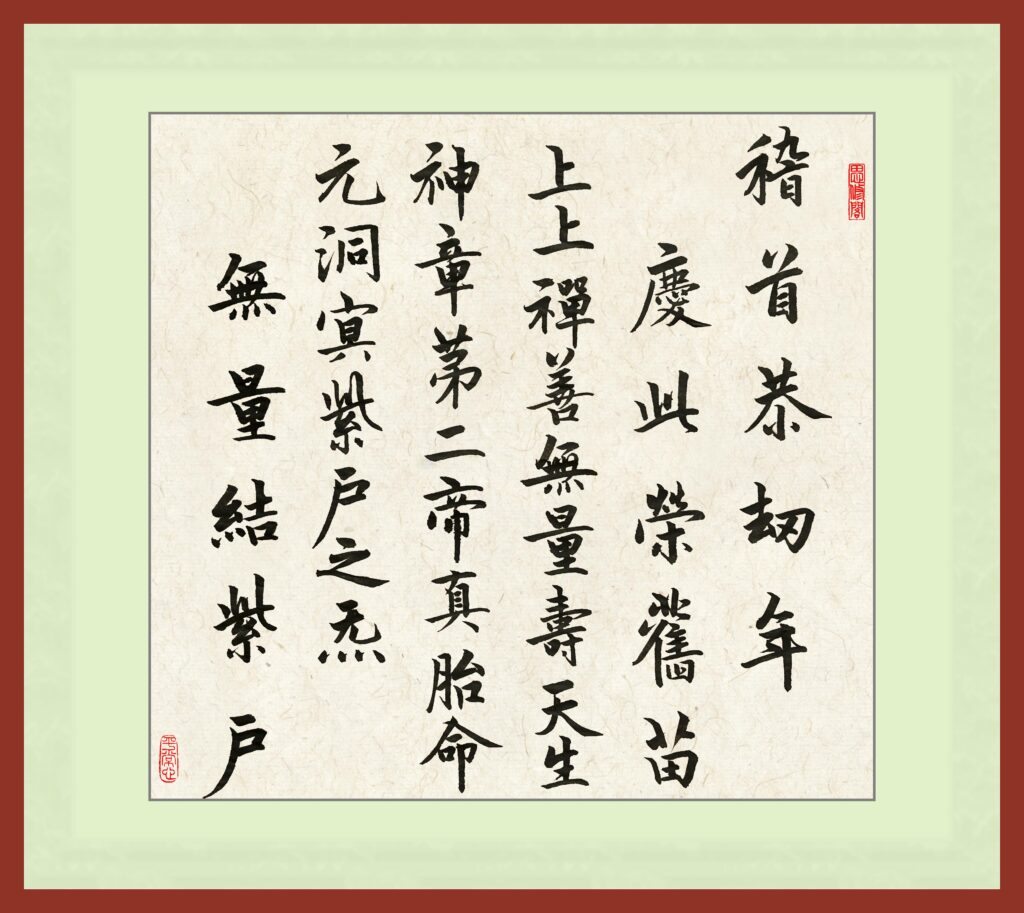 稽首恭劫年
慶此榮舊苗
上上禪善無量壽天生
神章第二帝真胎命
元洞冥紫戶之炁
無量結紫戶